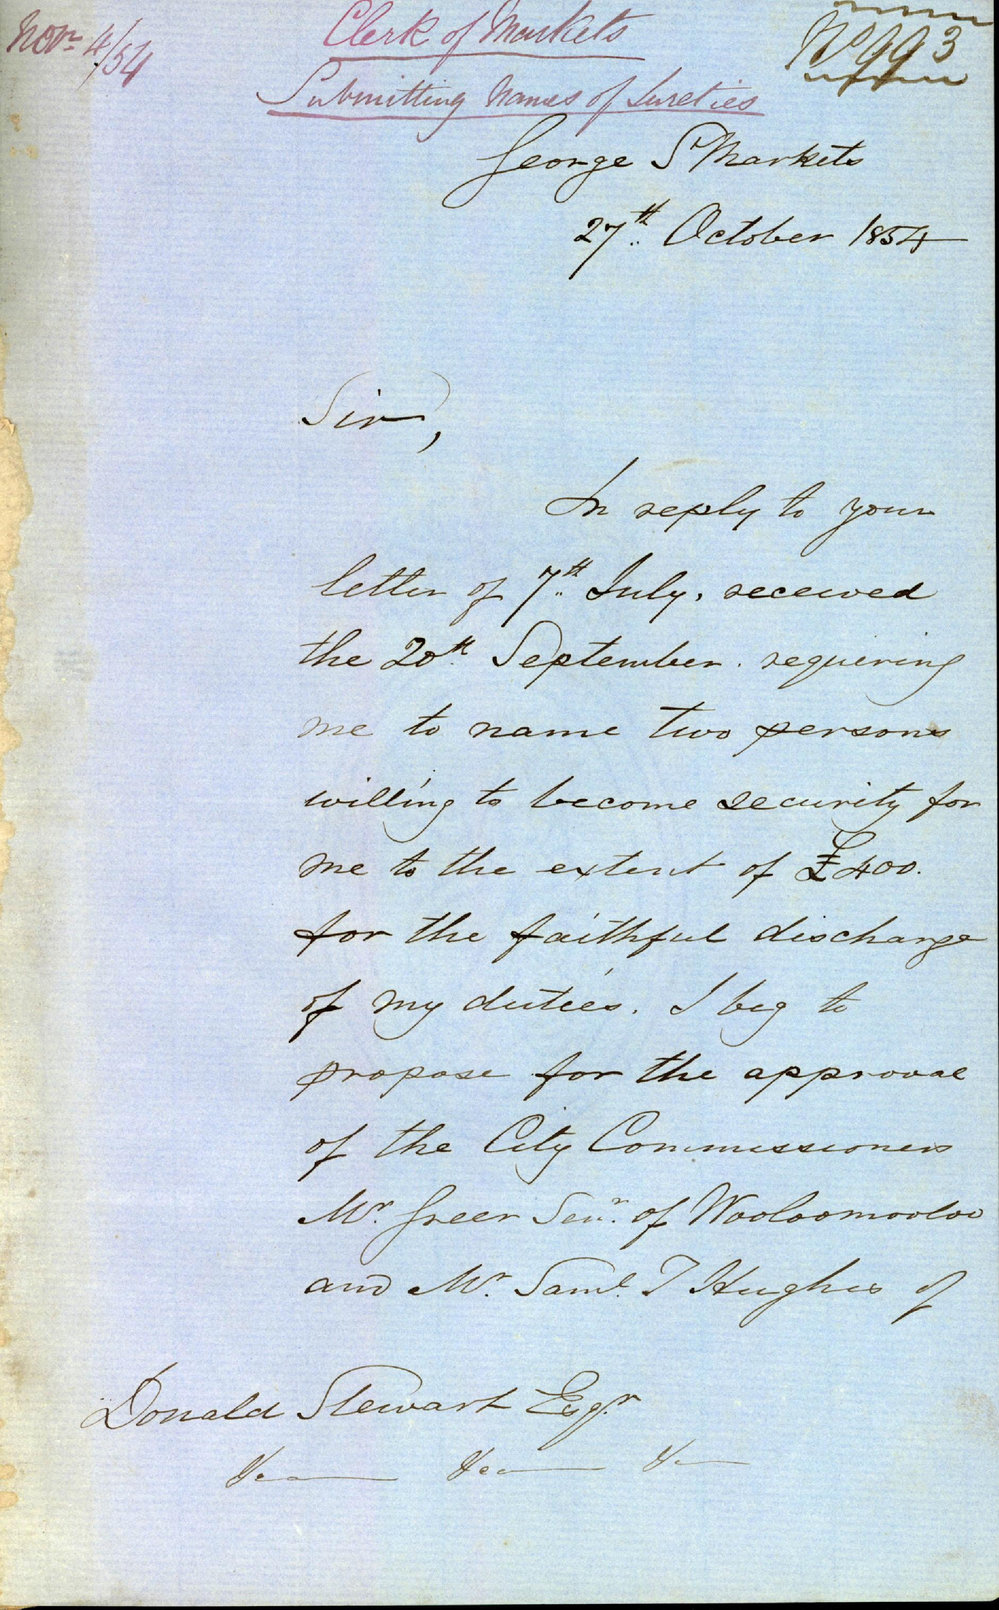 Novr 4/54
Clerk of Markets
No 993
Submitting Names of Sureties
George St Markets
27th October 1854
Sir,
In reply to your
letter of 7th July, received
the 20th September. requiring
me to name two persons
willing to become security for
me to the extent of £400.
for the faithful discharge
of my duties. I beg to
propose for the approval
of the City Commissioners
Mr. Greer Senr. of Wooloomooloo
and Mr. Saml. T Hughes of
Donald Stewart Esqr